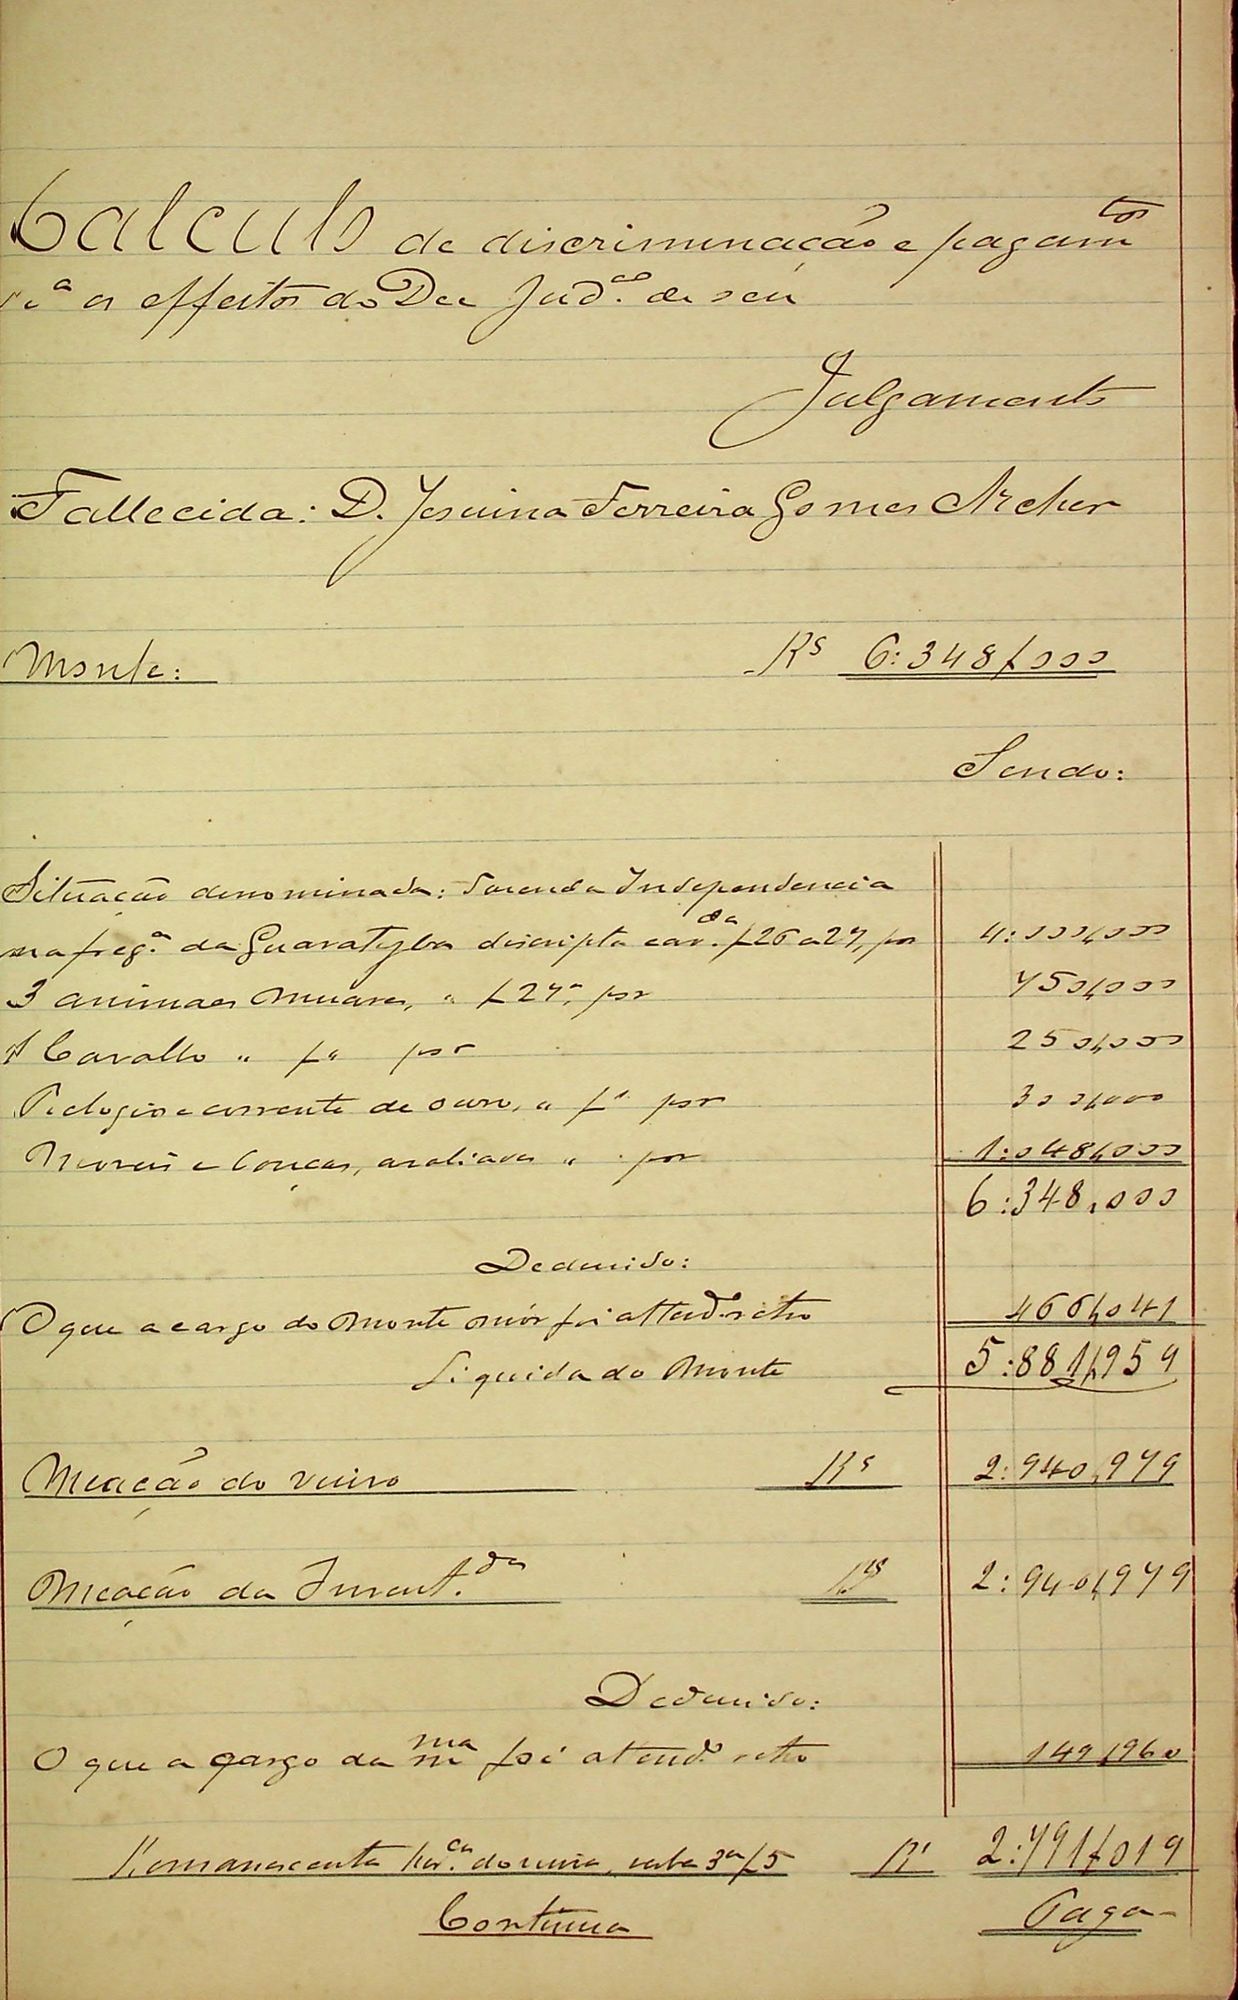 Calculo de discriminação e pagam.tos
p.a os effeitos do Dec Jud.co de seu
Julgamento
Fallecida: D. Jesuina Ferreira Gomes Archer
Monte: Rs 6:348$000
Sendo:
Situação denominada: Fazenda Independencia
na freg.a da Guaratyba discripta e av.da f 26 a 27, por 4:000$000
3 animaes muares, " f 27, por 750$000
1 Cavallo " f " por 250$000
Relogio e corrente de ouro, " f " por 300$000
Moveis e louças, avaliados " por 1:048$000
6:348,000
Deduzido:
O que a cargo do Monte mór foi attend.o retro 466$041
Liquido do Monte 5:881$959
Meação do viuvo Rs 2:940,979
Meação da Invent.da Rs 2:940$979
Deduzido:
O que a cargo da m.ma foi attend.o retro 149$960
Remanescente her.ca verba 3a f 5 Rs 2:791$019
Continua Paga-